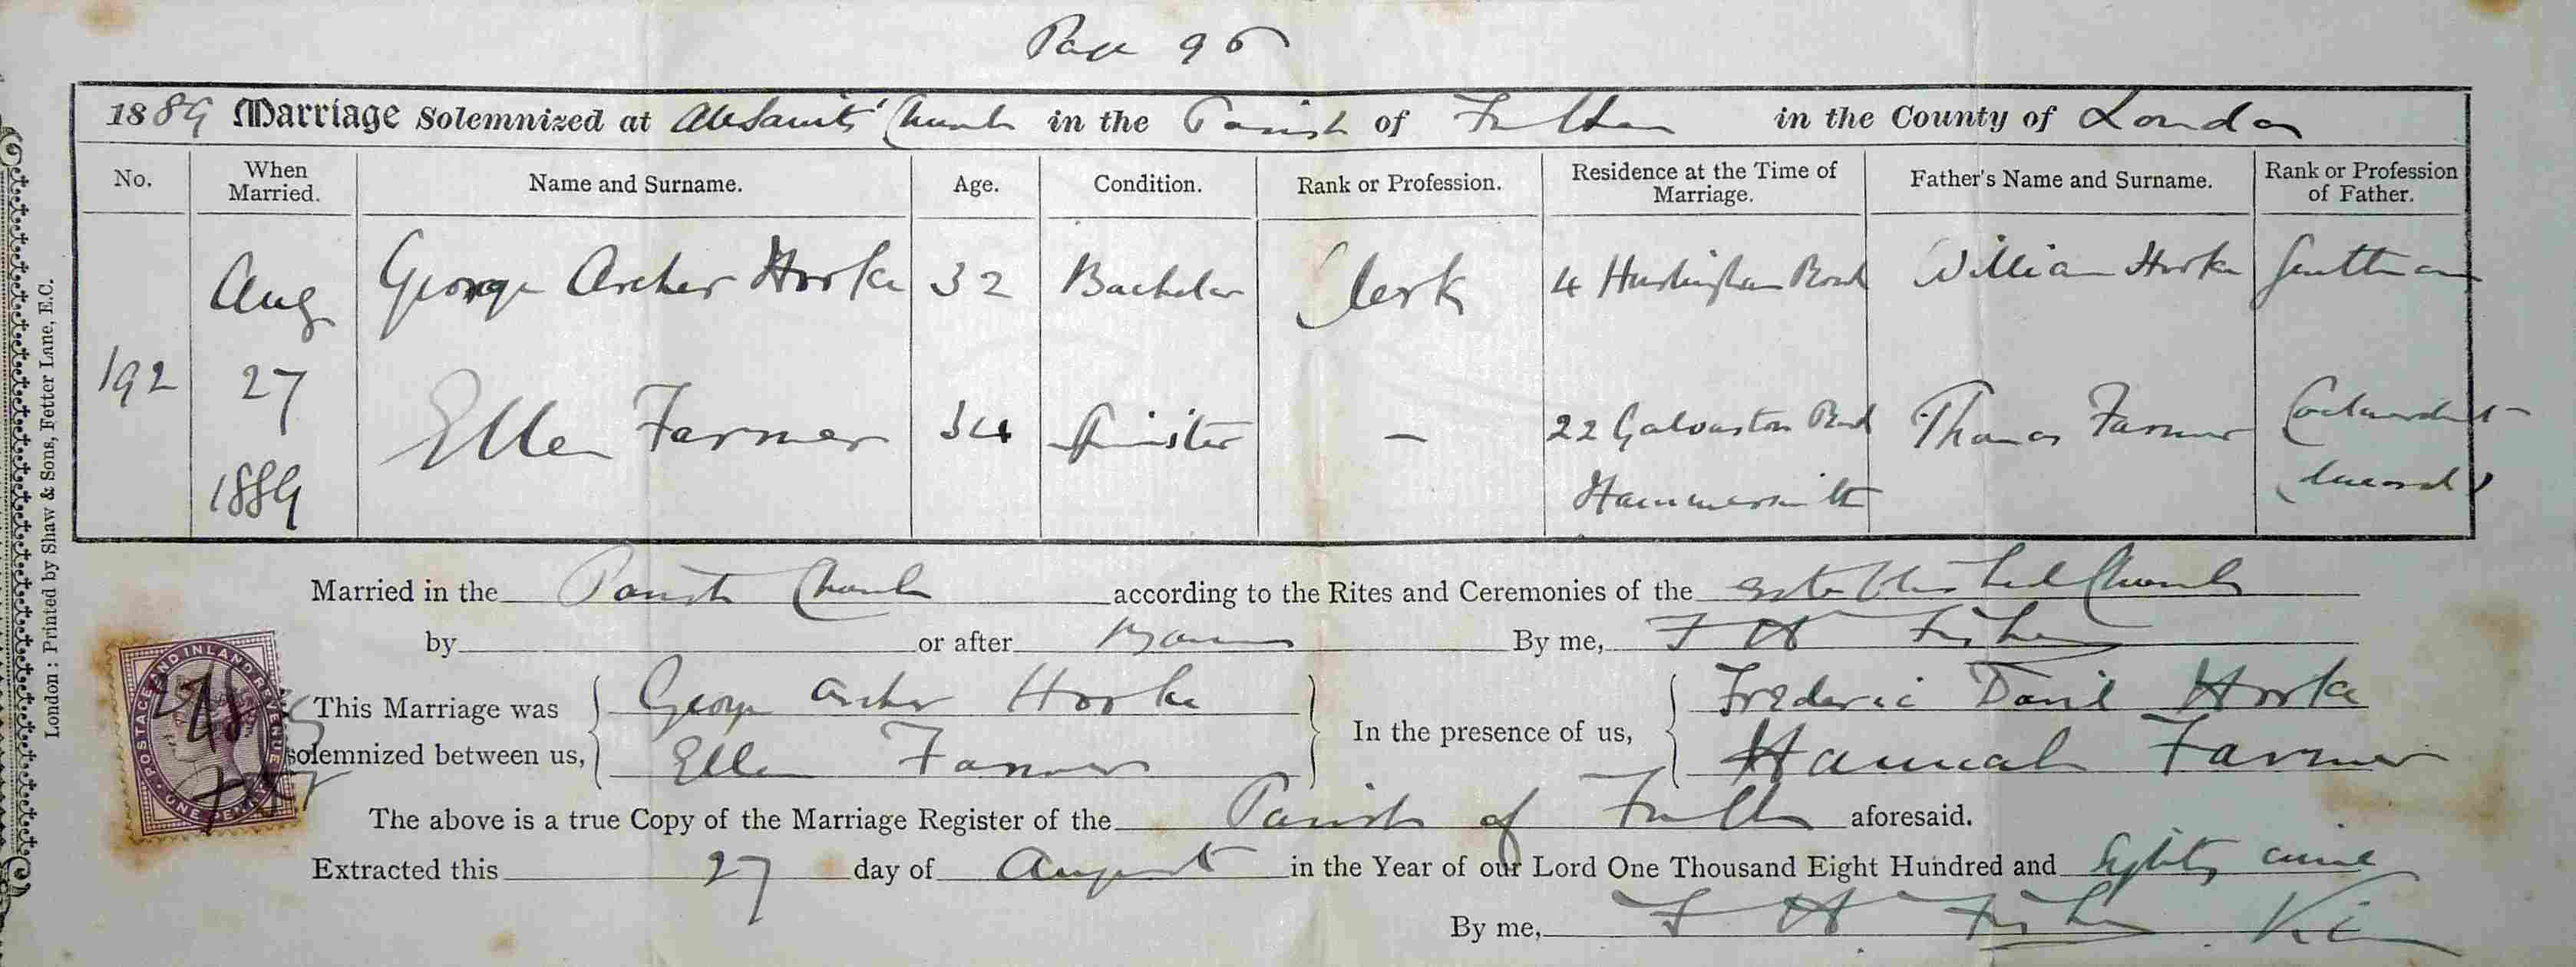 Page 96
1889 Marriage Solemnized at All Saints' Church in the Parish of Fulham in the County of London
No. When Married. Name and Surname. Age. Condition. Rank or Profession. Residence at the Time of Marriage. Father's Name and Surname. Rank or Profession of Father.
192 Aug 27 1889
George Archer Hooke 32 Bachelor Clerk 4 Hurlingham Road William Hooke Gentleman
Ellen Farmer 34 Spinster — 22 Galvaston Road Hammersmith Thomas Farmer (deceased)
Married in the Parish Church according to the Rites and Ceremonies of the Established Church
by or after Banns By me, F H Fisher
This Marriage was solemnized between us, George Archer Hooke
Ellen Farmer
In the presence of us, Frederic David Hooke
Hannah Farmer
The above is a true Copy of the Marriage Register of the Parish of Fulham aforesaid.
Extracted this 27 day of August in the Year of our Lord One Thousand Eight Hundred and Eighty nine
By me, F H Fisher
London: Printed by Shaw & Sons, Fetter Lane, E.C.
POSTAGE AND INLAND REVENUE
ONE PENNY